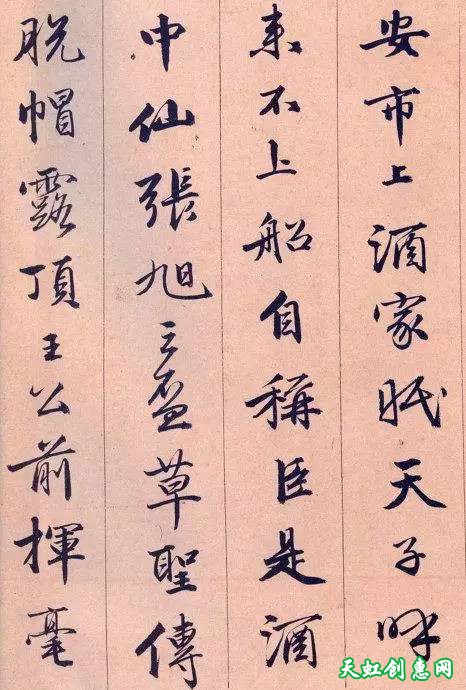 安市上酒家眠天子呼
来不上船自稱臣是酒
中仙張旭三盃草聖傳
脱帽露頂王公前揮毫
天虹创惠网